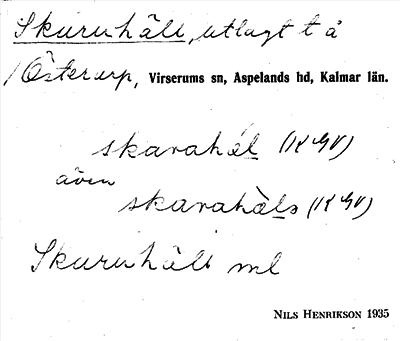 Skuruhält, utlagt t å
Österarp, Virserums sn, Aspelands hd, Kalmar län.
skarahäl (KGV)
även
skarahäls (KGV)
Skuruhält ml
NILS HENRIKSON 1935